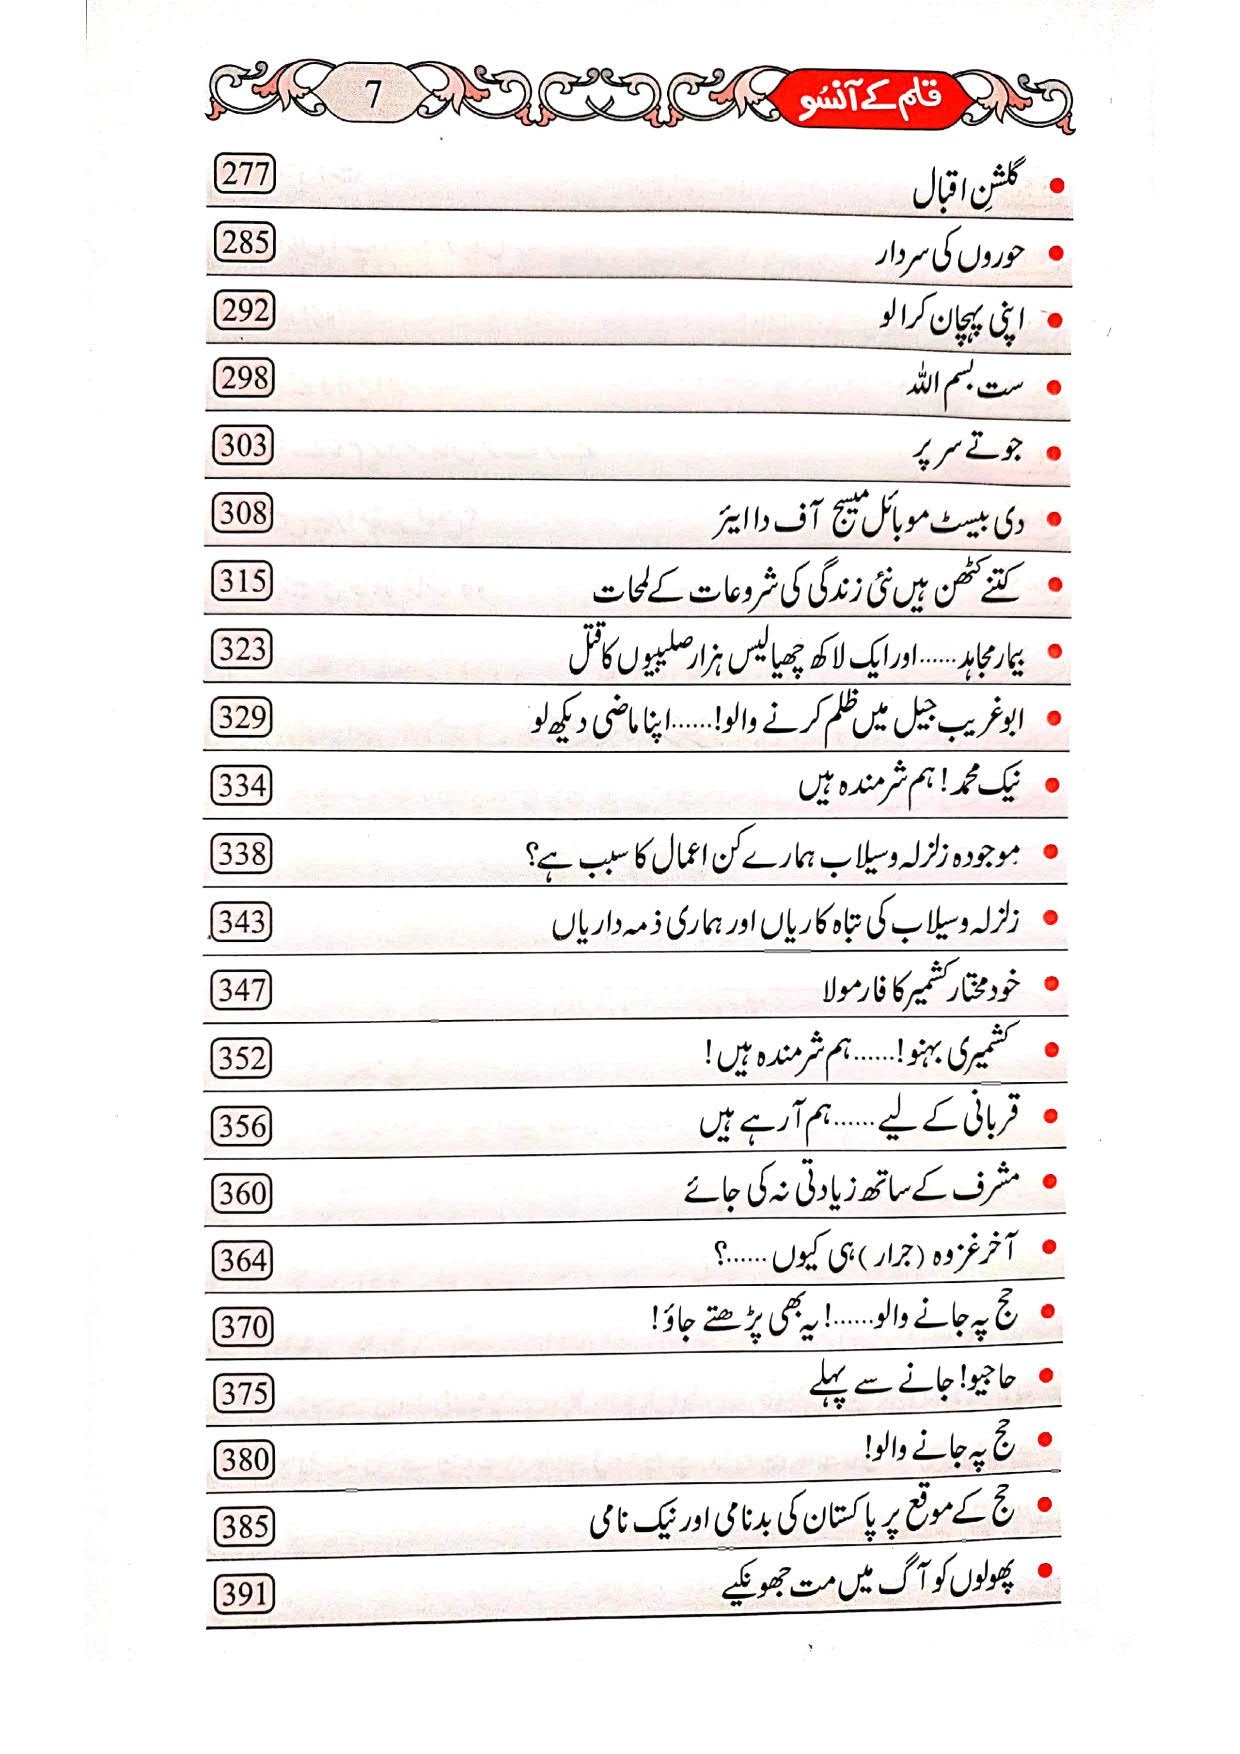 قلم کے آنسُو 7
گلشنِ اقبال 277
حوروں کی سردار 285
اپنی پہچان کرا لو 292
ست بسم اللہ 298
جوتے سر پر 303
دی بیسٹ موبائل میسج آف دا ایئر 308
کتنے کٹھن ہیں نئی زندگی کی شروعات کے لمحات 315
بیمار مجاہد......اور ایک لاکھ چھیالیس ہزار صلیبیوں کا قتل 323
ابوغریب جیل میں ظلم کرنے والو!......اپنا ماضی دیکھ لو 329
نیک محمد! ہم شرمندہ ہیں 334
موجودہ زلزلہ وسیلاب ہمارے کن اعمال کا سبب ہے؟ 338
زلزلہ وسیلاب کی تباہ کاریاں اور ہماری ذمہ داریاں 343
خودمختار کشمیر کا فارمولا 347
کشمیری بہنو!......ہم شرمندہ ہیں! 352
قربانی کے لیے......ہم آرہے ہیں 356
مشرف کے ساتھ زیادتی نہ کی جائے 360
آخر غزوہ (جرار) ہی کیوں......؟ 364
حج پہ جانے والو......! یہ بھی پڑھتے جاؤ! 370
حاجیو! جانے سے پہلے 375
حج پہ جانے والو! 380
حج کے موقع پر پاکستان کی بدنامی اور نیک نامی 385
پھولوں کو آگ میں مت جھونکیے 391